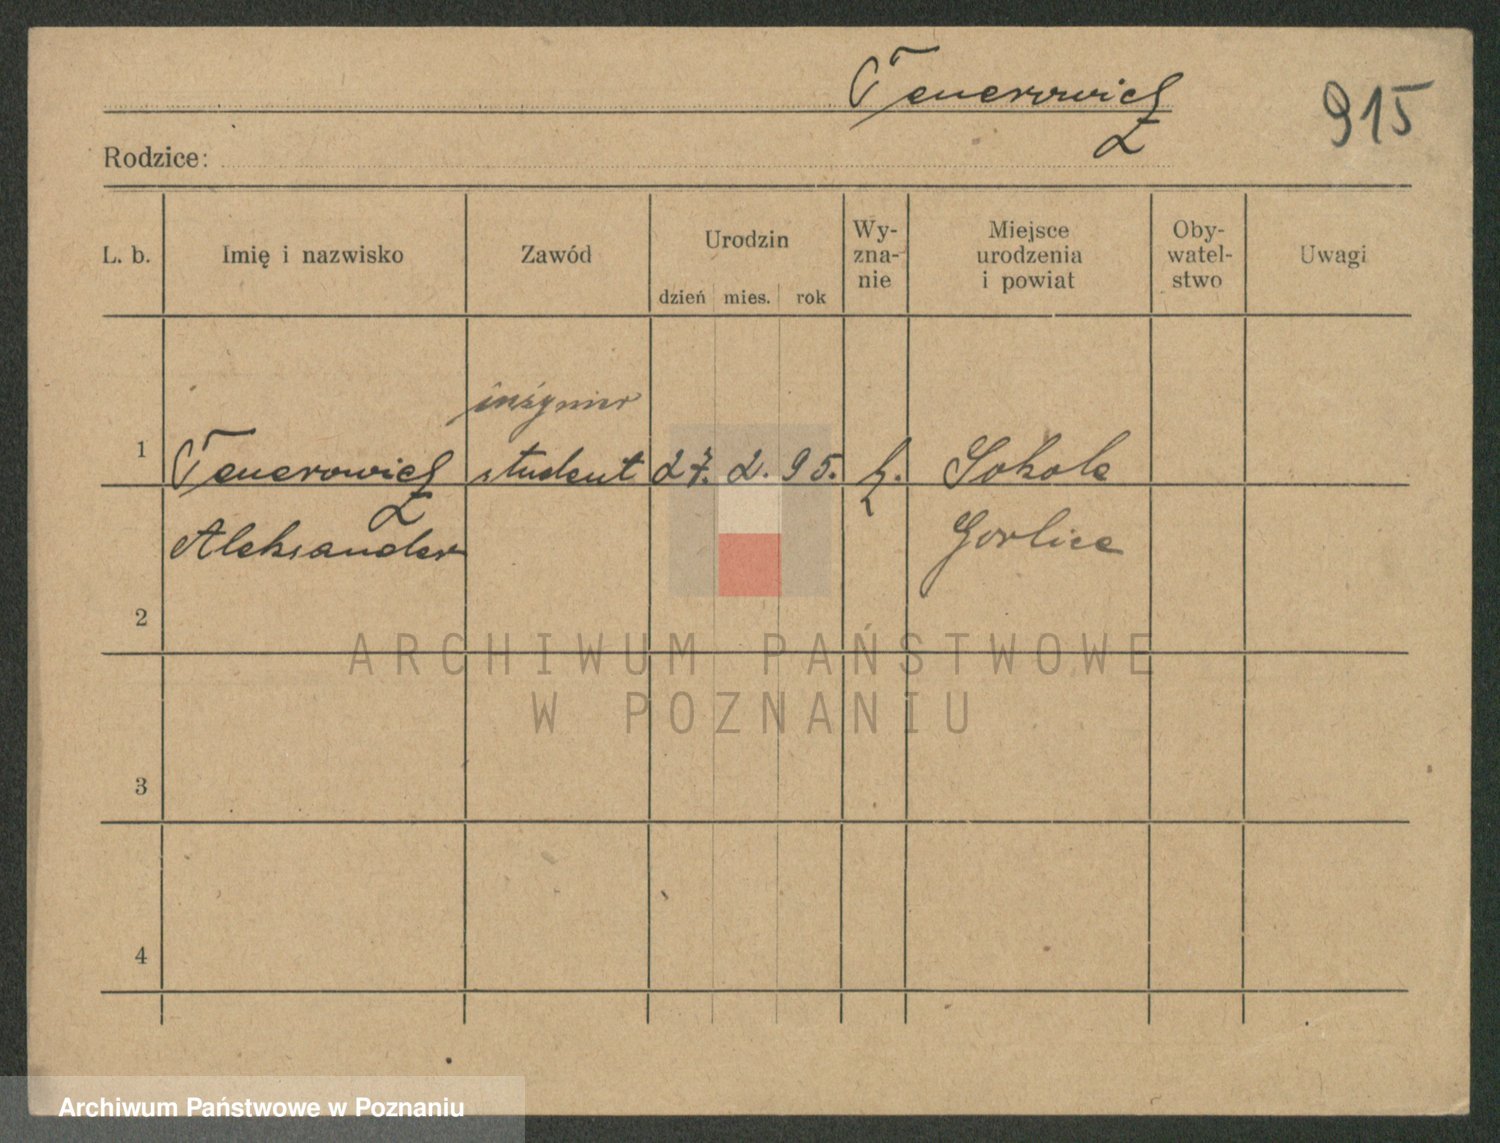 Tenerowicz
915
Rodzice:
L. b. Imię i nazwisko Zawód Urodzin dzień mies. rok Wy-zna-nie Miejsce urodzenia i powiat Oby-watel-stwo Uwagi
inżynier
1 Tenerowicz student 27. 2. 95. Sokole
Aleksander Gorlice
2
ARCHIWUM PAŃSTWOWE
W POZNANIU
3
4
Archiwum Państwowe w Poznaniu